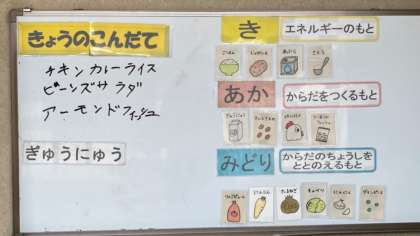 きょうのこんだて
チキンカレーライス
ビーンズサラダ
アーモンドフィッシュ
ぎゅうにゅう
き
エネルギーのもと
ごはん
じゃがいも
あぶら
さとう
あか
からだをつくるもと
ぎゅうにゅう
みどり
からだのちょうしを
ととのえるもと
にんじん
たまねぎ
きゅうり
にんにく